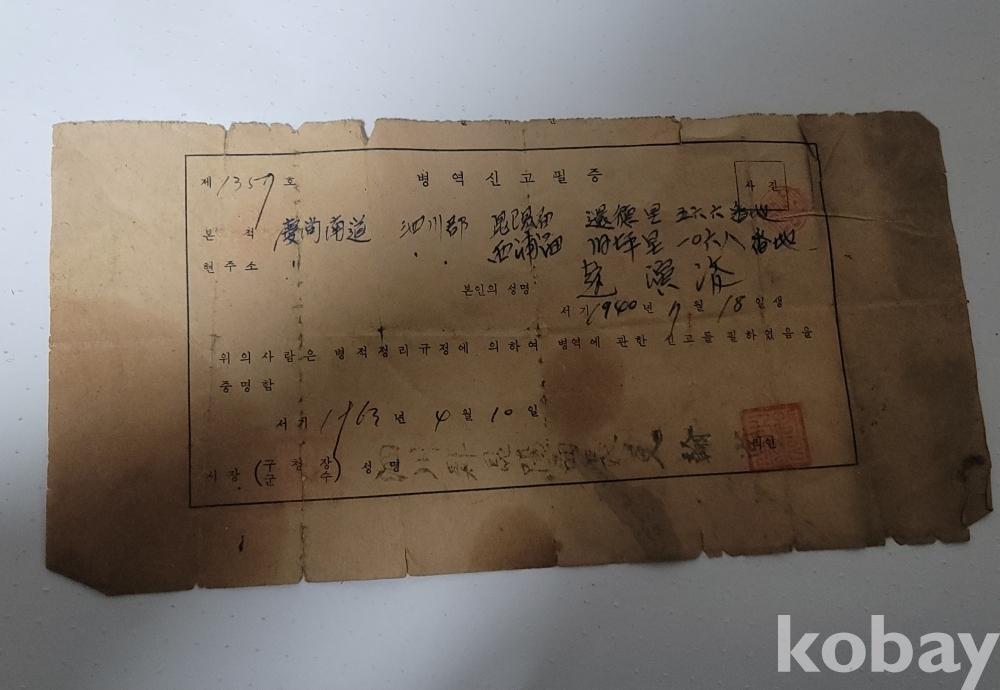 제 1357 호 병역신고필증 사진
본적 慶尚南道 泗川郡 昆陽面 還德里 五六六番地
현주소 〃 〃 西浦面 旧坪里 一〇六八番地
본인의 성명 濟
서기 1940년 7월 18일생
위의 사람은 병적정리규정에 의하여 병역에 관한 신고를 필하였음을
증명함
서기 1963년 4월 10일
시장 (구청장 군수) 성명 泗川郡昆陽面長 직인
kobay